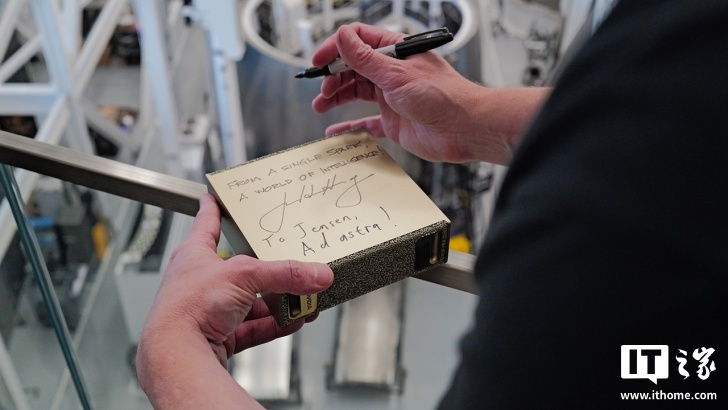 FROM A SINGLE SPARK,
A WORLD OF INTELLIGENCE!
To Jensen,
Ad astra!
NVIDIA
IT之家
www.ithome.com